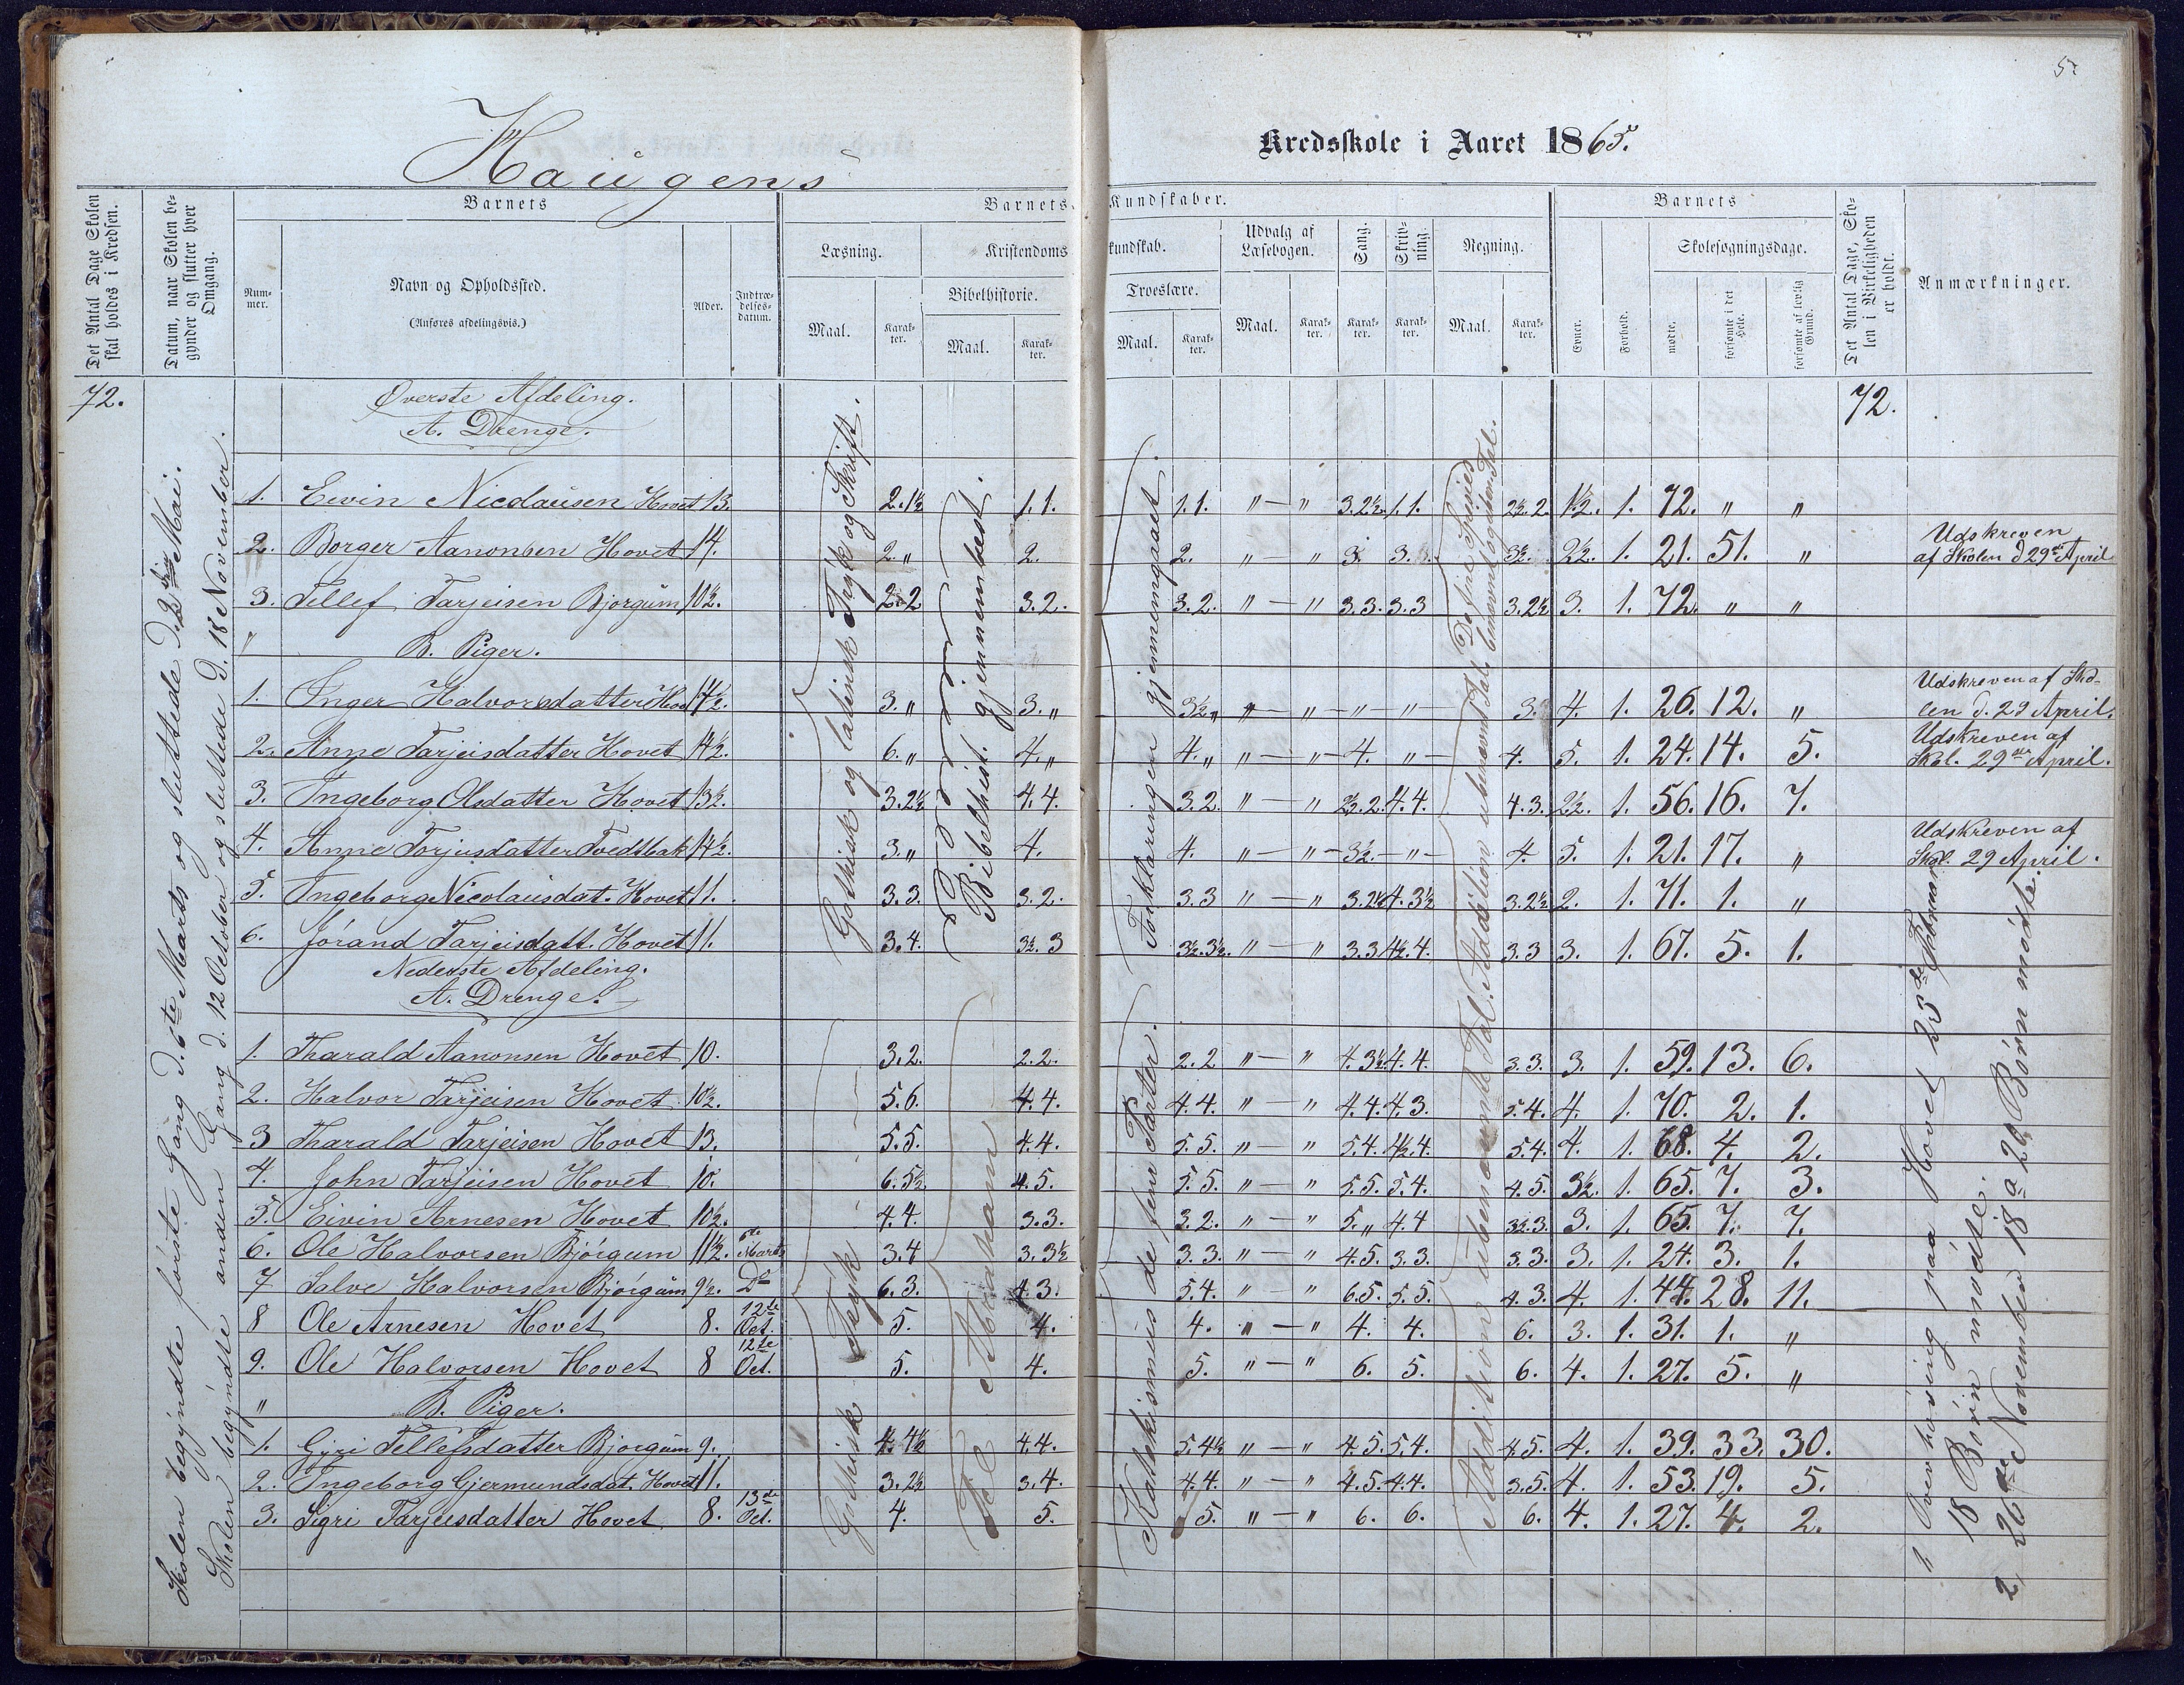 5.
Haugens Kredsskole i Aaret 1865.
Det Antal Dage Skolen skal holdes i Kredsen.
Datum, naar Skolen begynder og slutter hver Omgang.
Barnets
Nummer.
Navn og Opholdssted.
(Anføres afdelingsvis.)
Alder.
Indtrædelsesdatum.
Barnets Kundskaber.
Læsning.
Maal.
Karakter.
Kristendomskundskab.
Bibelhistorie.
Maal.
Karakter.
Troeslære.
Maal.
Karakter.
Udvalg af Læsebogen.
Maal.
Karakter.
Sang.
Karakter.
Skrivning.
Karakter.
Regning.
Maal.
Karakter.
Barnets
Evner.
Forhold.
Skolesøgningsdage.
mødte.
forsømte i det Hele.
forsømte af lovlig Grund.
Det Antal Dage, Skolen i Virkeligheden er holdt.
Anmærkninger.
72.
Skolen begyndte første Gang d. 6te Marts og sluttede d. 2den Mai.
Skolen begyndte anden Gang d. 12 October og sluttede d. 18 November.
Øverste Afdeling. 72.
A. Drenge.
Gothisk og latinsk Tryk og Skrift.
Bibelhist. gjennemlæst.
Forklaringen gjennemgaaet.
1. Eivin Nicolausen Hovet 13. 2.1½ 1.1. 1.1. " — " 3.2½ 1.1. 2½.2. 1½. 1. 72. " "
2. Borger Aanonsen Hovet 14. 2." 2. 2. " — " 3. 3. 3½. 2½. 1. 21. 51. " Udskreven af Skolen d 29de April
3. Tellef Tarjeisen Bjorgum 10½. 2.2 3.2. 3.2. " — " 3.3. 3.3 3.2½ 3. 1. 72. " "
" B. Piger.
1. Inger Halvorsdatter Hov 14½. 3." 3." 3½" " — " — " — " — 3. 4. 1. 26. 12. " Udskreven af Skolen d. 29 April.
2. Anne Tarjeisdatter Hovet 14½. 6." 4." 4." " — " — 4. " — 4. 5. 1. 24. 14. 5. Udskreven af Skol. 29de April.
3. Ingeborg Olsdatter Hovet 13½. 3.2½ 4.4. 3.2. " — " 2½.2. 4.4. 4.3. 2½. 1. 56. 16. 7.
4. Anne Torjusdatter Tvedtbak 14½. 3." 4. 4. " — " — 3½. — " — 4. 5. 1. 21. 17. " Udskreven af Skol. 29 April.
5. Ingeborg Nicolausdat. Hovet 11. 3.3. 3.2. 3.3 " — " 3.2½ 4.3½ 3.2½ 2. 1. 71. 1. "
6. Jórand Tarjeisdatt. Hovet 11. 3.4. 3½.3 3½.3½. " — " 3.3 4½.4. 3.3 3. 1. 67. 5. 1.
Nederste Afdeling.
A. Drenge.
Gothisk Tryk
Katekismus de fem Parter.
Addition ubenævnte Tal.
1. Tharald Aanonsen Hovet 10. 3.2. 2.2. 2.2 " — " 4.3½ 4.4. 3.3. 3. 1. 59. 13. 6.
2. Halvor Tarjeisen Hovet 10½. 5.6. 4.4. 4.4. " — " 4.4. 4.3. 5.4. 4. 1. 70. 2. 1.
3 Tharald Tarjeisen Hovet 13. 5.5. 4.4. 5.5. " — " 5.4. 4½.4. 5.4. 4. 1. 68. 4. 2.
4. John Tarjeisen Hovet 10. 6.5½ 4.5. 5.5. " — " 5.5. 5.4. 4.5. 3½. 1. 65. 7. 3.
5. Eivin Arnesen Hovet 10½. 4.4. 3.3. 3.2. " — " 5." 4.4 3½.3. 3. 1. 65. 7. 7.
6. Ole Halvorsen Bjórgum 11½. 6te Marts 3.4 3.3½ 3.3. " — " 4.5. 3.3. 3.3. 3. 1. 24. 3. 1.
7 Salve Halvorsen Bjórgum 9½. Do 6.3. 4.3. 5.4. " — " 6.5. 5.5. 4.3. 4. 1. 44. 28. 11.
8 Ole Arnesen Hovet 8. 12te Oct. 5. 4. 4. " — " 4. 4. 6. 3. 1. 31. 1. "
9. Ole Halvorsen Hovet 8 12te Oct. 5. 4. 5. " — " 6. 5. 6. 4. 1. 27. 5. "
" B. Piger.
1. Gyri Tellefsdatter Bjorgum 9. 4.4½ 4.4. 5.4½ " — " 4.5. 5.4. 4.5. 4. 1. 39. 33. 30.
2. Ingeborg Gjermundsdat. Hovet 11. 3.2½ 3.4. 4.4. " — " 4.5. 4.4. 3.5. 4. 1. 53. 19. 5.
3. Sigri Tarjeisdatter Hovet 8. 13de Oct. 4. 5. 5. " — " 6. 6. 6. 4. 1. 27. 4. 2.
1, Overhøring paa Hovet 23de Februar
18 Børn mødte.
2, 26de November 18 a 20 Børn mødte.